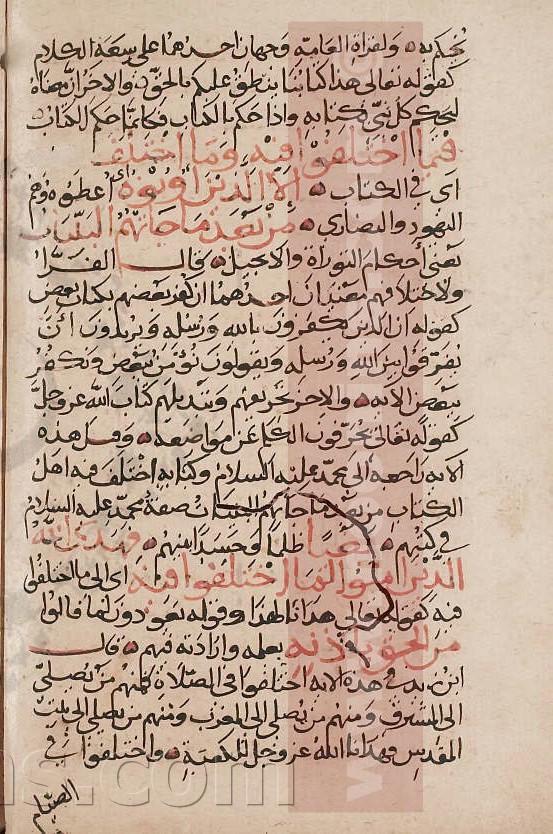 ليحكم به ولقراة العامة وجهان احدهما على سعة الكلام
كقوله تعالى هذا كتابنا ينطق عليكم بالحق والاخر ان معناه
ليحكم كل نبي بكتابه واذا حكم بالكتاب فكانما حكم الكتاب
فيما اختلفوا فيه وما اختلف
اى في الكتاب الا الذين اوتوه اى اعطوه وهم
اليهود والنصارى من بعد ما جاتهم البينات
يعني احكام التوراة والانجيل قال الفراء
ولاختلافهم معنيان احدهما ان كفر بعضهم بكتاب بعض
كقوله ان الذين يكفرون بالله ورسله ويريدون أن
يفرقوا بين الله ورسله ويقولون نؤمن ببعض ونكفر
ببعض الاية والاخر تحريفهم وتبديلهم كتاب الله عز وجل
كقوله تعالى يحرفون الكلم عن مواضعه وقيل هذه
الاية راجعة الى محمد عليه السلام وكتابه اختلف فيه اهل
الكتاب من بعد ما جاتهم البينات صفة محمد عليه السلام
في كتبهم بغيا ظلما وحسدا بينهم فهدى الله
الذين امنوا لما اختلفوا فيه اى الى ما اختلفوا
فيه كقوله تعالى هدانا لهذا وقوله يعودون لما قالوا
من الحق باذنه بعلمه وارادته فيهم قال
ابن زيد في هذه الاية اختلفوا في الصلاة فمنهم من يصلي
الى المشرق ومنهم من يصلي الى المغرب ومنهم من يصلي الى بيت
المقدس فهدانا الله عز وجل للكعبة واختلفوا في
الصيام